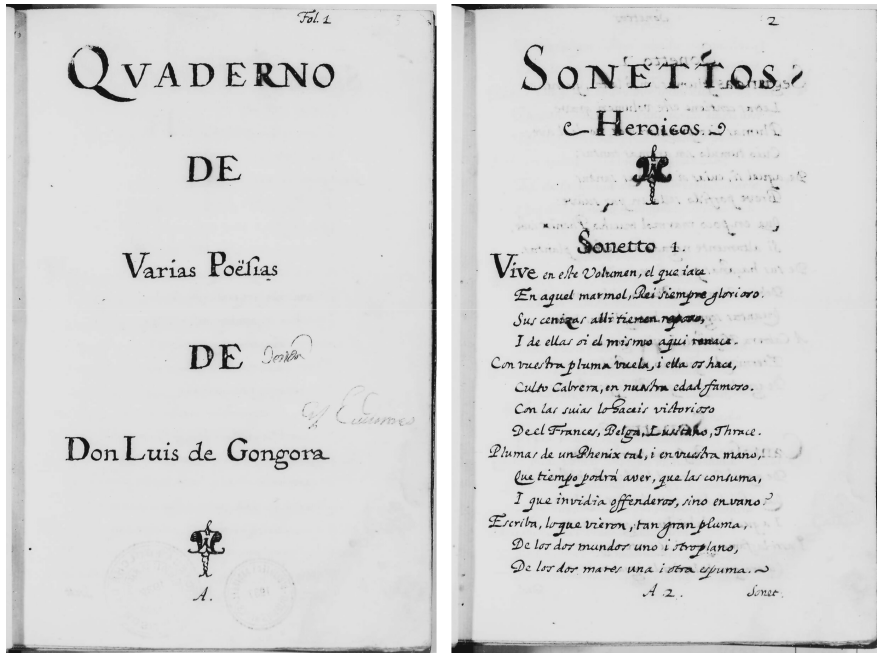 Fol. 1
QVADERNO
DE
Varias Poësias
DE
Don Luis de Gongora
A.
2
SONETTOS
Heroicos.
Sonetto 1.
Vive en este Volumen, el que iace
En aquel marmol, Rei siempre glorioso.
Sus cenizas alli tienen reposo,
I de ellas oi el mismo aqui renace.
Con vuestra pluma vuela, i ella os hace,
Culto Cabrera, en nuestra edad famoso.
Con las suias lo haceis victorioso
De el Frances, Belga, Lusitano, Thrace.
Plumas de un Phenix tal, i en vuestra mano,
Que tiempo podrá aver, que las consuma,
I que invidia offenderos, sino en vano?
Escriba, lo que vieron, tan gran pluma,
De los dos mundos uno i otro plano,
De los dos mares una i otra espuma.
A 2. Sonet.